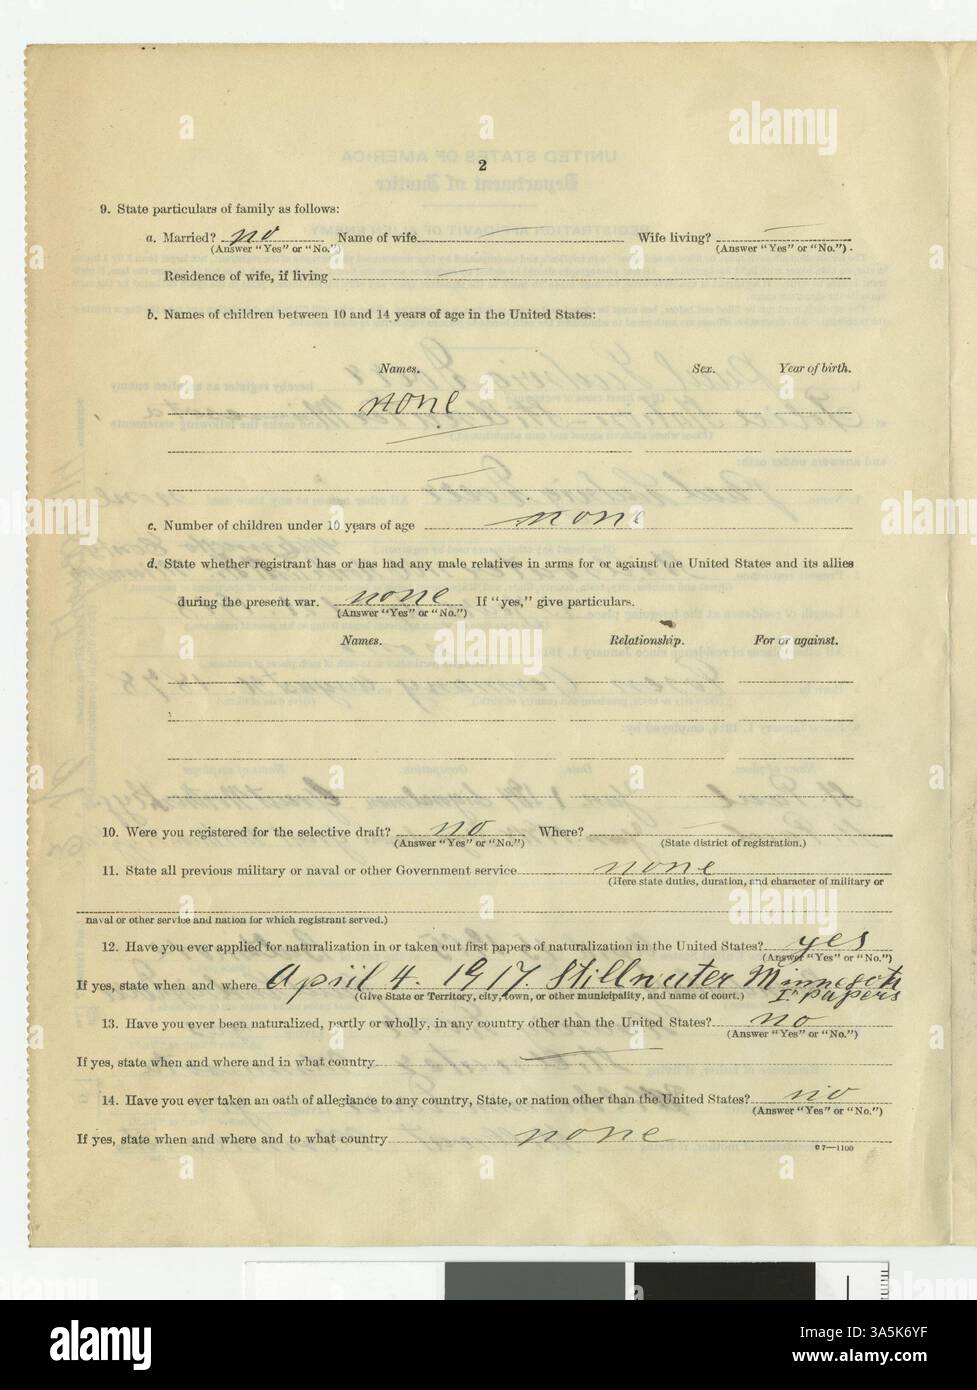 2
9. State particulars of family as follows:
a. Married? no Name of wife — Wife living? —
(Answer "Yes" or "No.") (Answer "Yes" or "No.")
Residence of wife, if living —
b. Names of children between 10 and 14 years of age in the United States:
Names. Sex. Year of birth.
none
c. Number of children under 10 years of age none
d. State whether registrant has or has had any male relatives in arms for or against the United States and its allies
during the present war. none If "yes," give particulars.
(Answer "Yes" or "No.")
Names. Relationship. For or against.
10. Were you registered for the selective draft? no Where? —
(Answer "Yes" or "No.") (State district of registration.)
11. State all previous military or naval or other Government service none
(Here state duties, duration, and character of military or
naval or other service and nation for which registrant served.)
12. Have you ever applied for naturalization in or taken out first papers of naturalization in the United States? yes
(Answer "Yes" or "No.")
If yes, state when and where April 4. 1917. Stillwater Minnesota
(Give State or Territory, city, town, or other municipality, and name of court.) papers
13. Have you ever been naturalized, partly or wholly, in any country other than the United States? no
(Answer "Yes" or "No.")
If yes, state when and where and in what country —
14. Have you ever taken an oath of allegiance to any country, State, or nation other than the United States? no
(Answer "Yes" or "No.")
If yes, state when and where and to what country none
7—1100
alamy
Image ID: 2A5K6YF
www.alamy.com